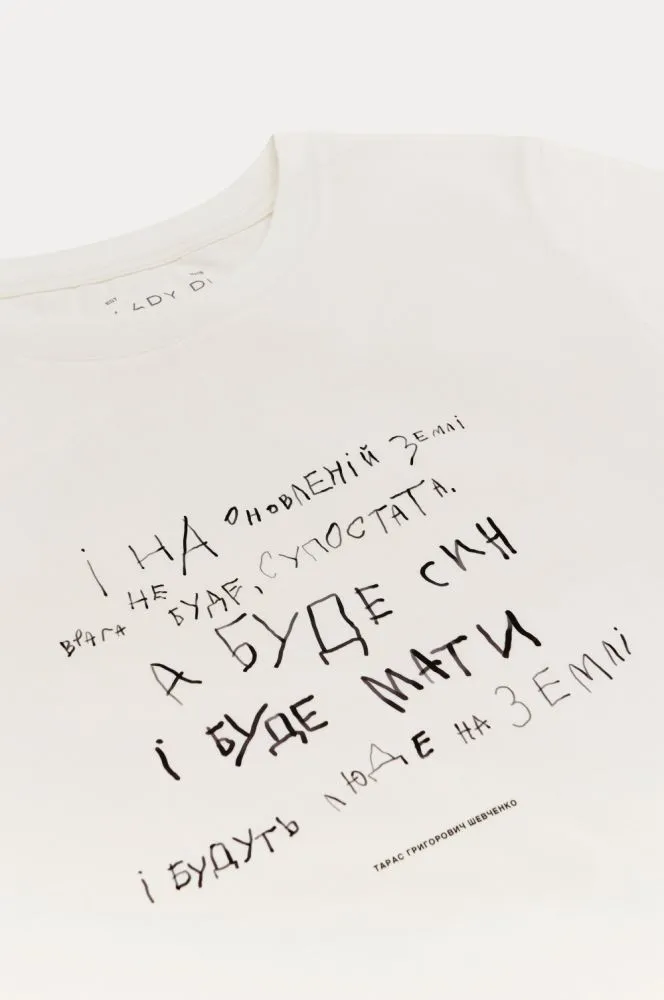 І НА ОНОВЛЕНІЙ ЗЕМЛІ
ВРАГА НЕ БУДЕ, СУПОСТАТА.
А БУДЕ СИН
І БУДЕ МАТИ
І БУДУТЬ ЛЮДЕ НА ЗЕМЛІ
ТАРАС ГРИГОРОВИЧ ШЕВЧЕНКО